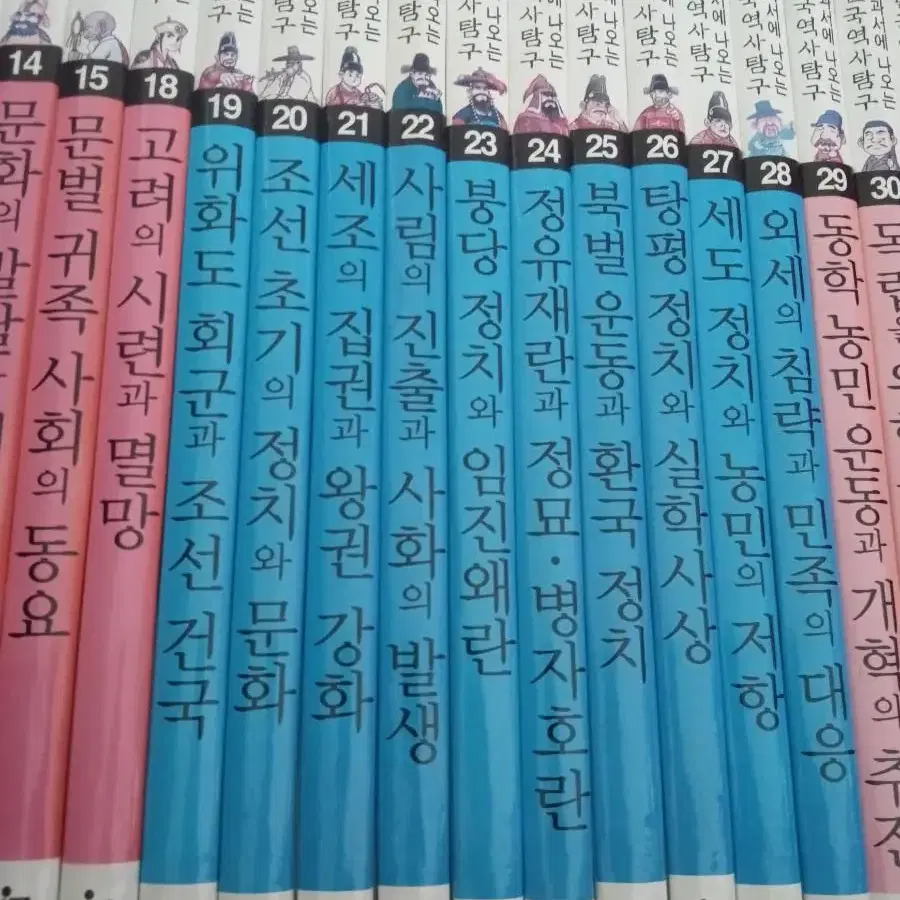 14
문화의
15
문벌 귀족 사회의 동요
18
고려의 시련과 멸망
나오는
탐구
19
위화도 회군과 조선 건국
나오는
탐구
20
조선 초기의 정치와 문화
나오는
탐구
21
세조의 집권과 왕권 강화
나오는
탐구
22
사림의 진출과 사화의 발생
나오는
탐구
23
붕당 정치와 임진왜란
에 나오는
사탐구
24
정유재란과 정묘·병자호란
에 나오는
사탐구
25
북벌 운동과 환국 정치
에 나오는
사탐구
26
탕평 정치와 실학 사상
에 나오는
역사탐구
27
세도 정치와 농민의 저항
서에 나오는
국역사탐구
28
외세의 침략과 민족의 대응
과서에 나오는
국역사탐구
29
동학 농민 운동과 개혁의 추진
30
독립을